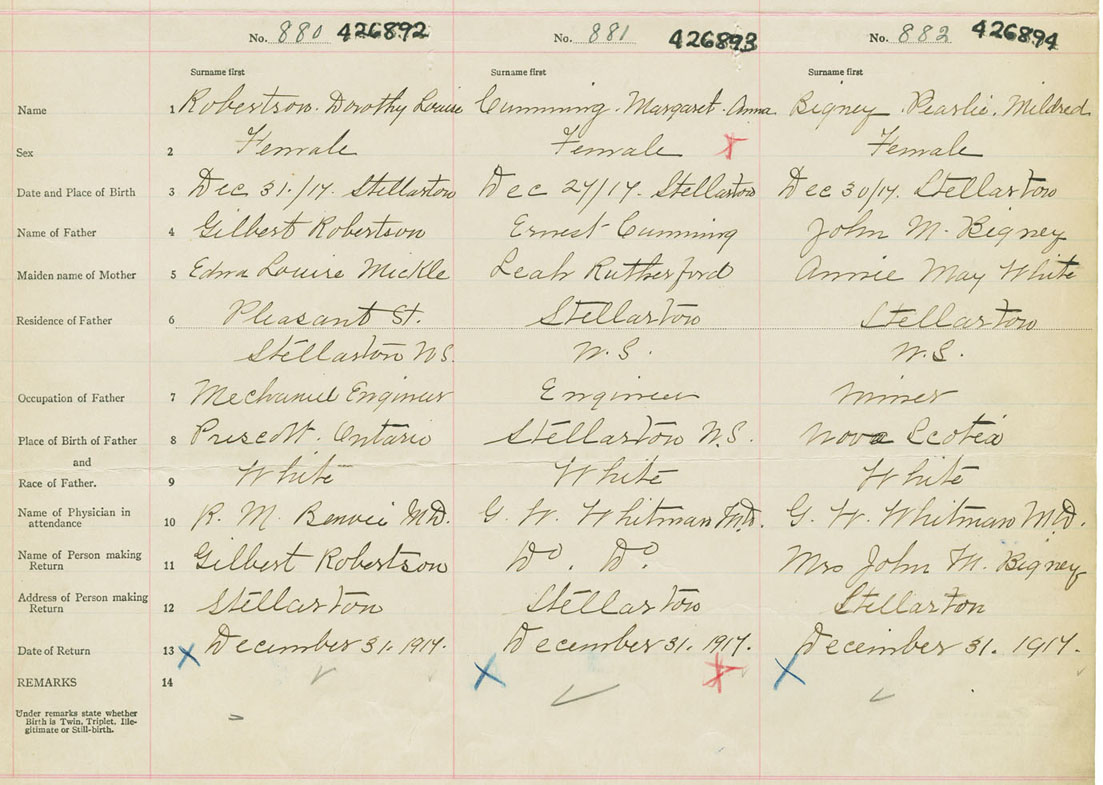 No. 880 426892 No. 881 426893 No. 882 426894
Surname first Surname first Surname first
Name 1 Robertson. Dorothy Louise Cumming. Margaret. Anna Bigney Pearlie. Mildred
Sex 2 Female Female Female
Date and Place of Birth 3 Dec 31./17. Stellarton Dec 27/17. Stellarton Dec 30/17. Stellarton
Name of Father 4 Gilbert Robertson Ernest Cumming John M. Bigney
Maiden name of Mother 5 Edna Louise Mickle Leah Rutherford Annie May White
Residence of Father 6 Pleasant St. Stellarton Stellarton
Stellarton N.S. N.S. N.S.
Occupation of Father 7 Engineer Engineer Miner
Place of Birth of Father 8 Prescott. Ontario Stellarton N.S. Nova Scotia
and
Race of Father. 9 White White White
Name of Physician in
attendance 10 R. M. Benvie M.D. G. W. Whitman M.D. G. W. Whitman M.D.
Name of Person making
Return 11 Gilbert Robertson Do. Do. Mrs John M. Bigney
Address of Person making
Return 12 Stellarton Stellarton Stellarton
Date of Return 13 December 31. 1917. December 31. 1917. December 31. 1917.
REMARKS 14
Under remarks state whether
Birth is Twin, Triplet, Ille-
gitimate or Still-birth.